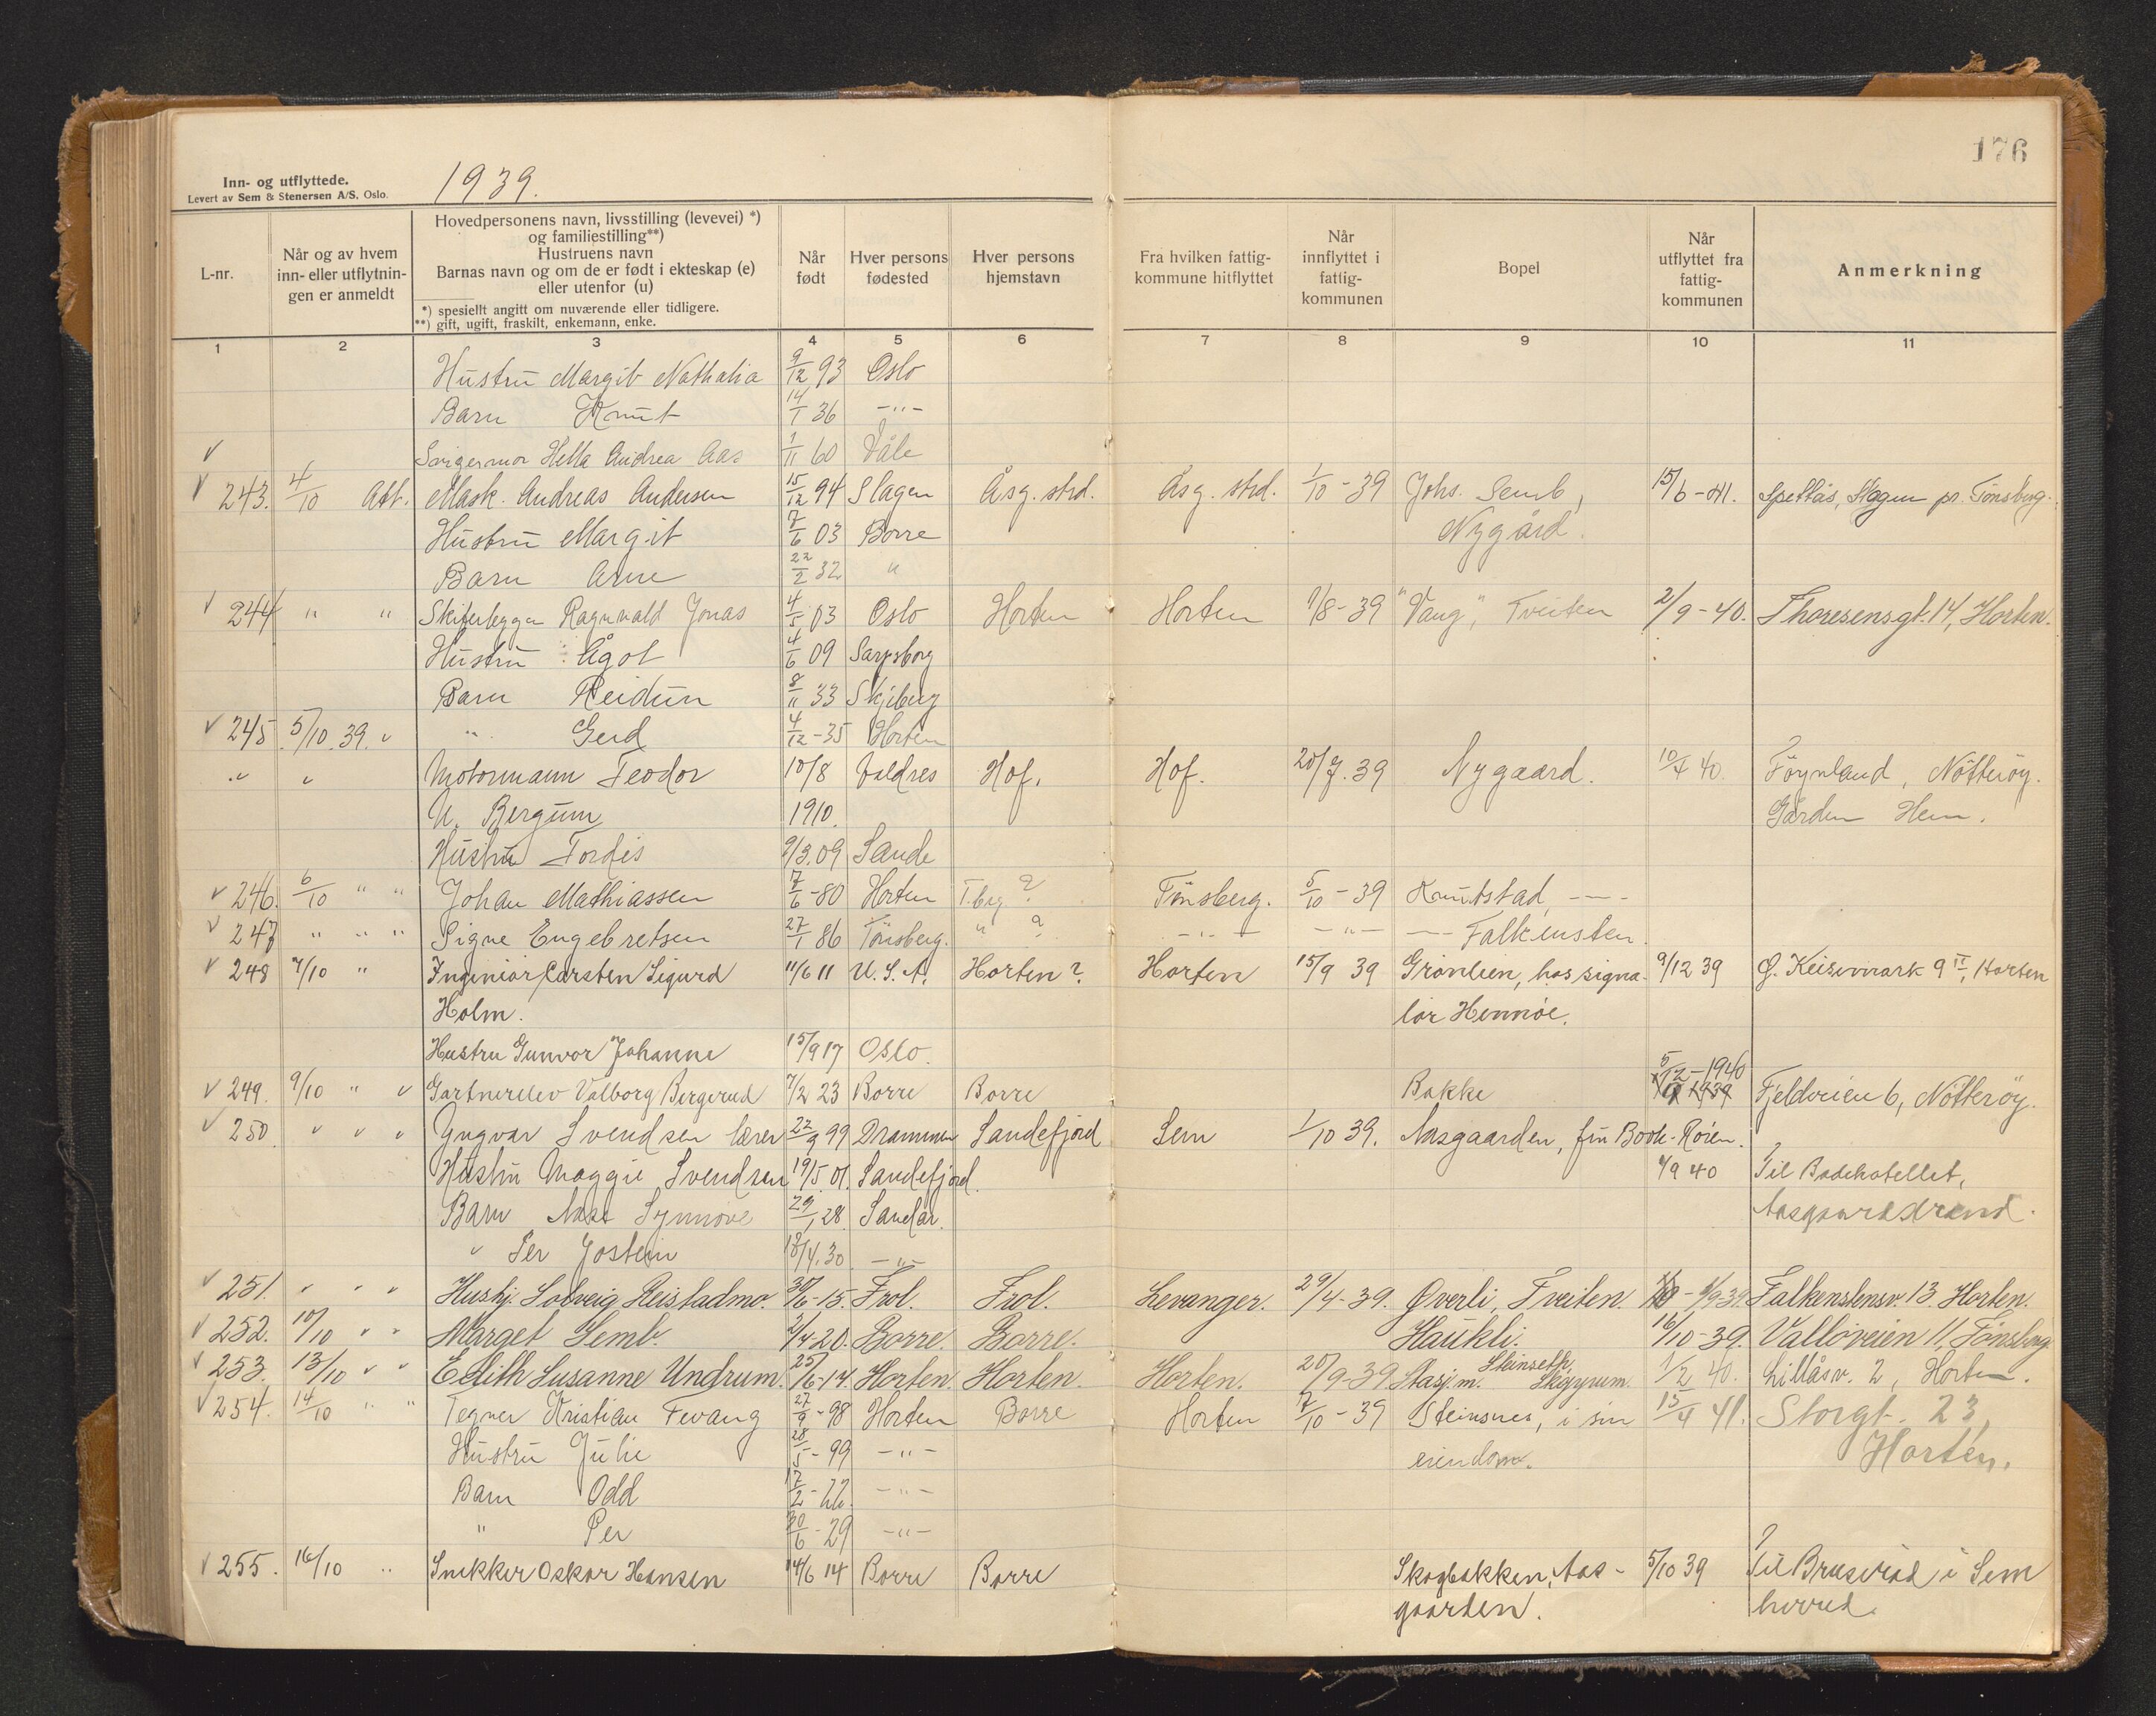 176
Inn- og utflyttede.
Levert av Sem & Stenersen A/S, Oslo.
1939.
L-nr.
Når og av hvem
inn- eller utflytnin-
gen er anmeldt
Hovedpersonens navn, livsstilling (levevei) *)
og familiestilling**)
Hustruens navn
Barnas navn og om de er født i ekteskap (e)
eller utenfor (u)
*) spesiellt angitt om nuværende eller tidligere.
**) gift, ugift, fraskilt, enkemann, enke.
Når
født
Hver persons
fødested
Hver persons
hjemstavn
Fra hvilken fattig-
kommune hitflyttet
Når
innflyttet i
fattig-
kommunen
Bopel
Når
utflyttet fra
fattig-
kommunen
Anmerkning
1 2 3 4 5 6 7 8 9 10 11
Hustru Margit Nathalia 9/12 93 Oslo
Barn Knut 14/1 36 -"-
Svigermor Hella Andrea Aas 1/11 60 Våle
243. 4/10 Att. Mask. Andreas Andersen 15/12 94 Slagen Åsg. strd. Åsg. strd. 1/10 - 39 Johs. Semb, 15/6 - 41. Spettås, Slagen pr. Tönsberg.
Hustru Margit 7/6 03 Borre Nygård.
Barn Arne 22/2 32 "
244 " " Ragnvald Jonas 4/5 03 Oslo Horten Horten 1/8 - 39 "Vang", Tveiten 2/9 - 40. Thoresensgt. 14, Horten.
Hustru Ågot 4/6 09 Sarpsborg
Barn Reidun 8/11 33 Skjeberg
245 5/10. 39. " " Gerd 4/12 - 35 Horten
" " Motormann Teodor 10/8 Valdres Hof. Hof. 20/7. 39 Nygaard. 10/4 40. Föynland, Nötteröy.
N. Bergum 1910. Gården Hem.
Hustru Tordis 9/3. 09 Sande
246. 6/10 " " Johan Mathiassen 7/6 - 80 Horten T.berg ? Tönsberg. 5/10 - 39 Knutstad, -"-
247 " " " Signe Engebretsen 27/1 86 Tönsberg. " ? -"- -"- -"- Falkensten.
248 7/10 " Ingeniør Carsten Sigurd 11/6 11 U.S.A. Horten? Horten 15/9 39 Grønlien, hos signa- 9/12 39 Ø. Keisemark 9 II, Horten
Holm. lør Hennøe.
Hustru Gunvor Johanne 15/9 17 Oslo.
249. 9/10 " " Gartnerelev Valborg Bergerud 7/2 23 Borre Borre Bakke 5/12 - 1940 Fjeldveien 6, Nötteröy.
250 " " " Yngvar Svendsen lærer 22/9 99 Drammen Sandefjord Sem 1/10 39. Aasgaarden, frü Book-Röien.
Hustru Maggie Svendsen 19/5 01. Sandefjord. 1/9 40 Til Badehotellet,
Barn Aase Synnöve 29/1 28. Sandar. Aasgaardstrand.
" Per Jostein 18/4. 30. -"-
251. " " " Hushj. Solveig Reistadmo. 30/6 - 15. Frol. Frol. Levanger. 29/4 - 39. Øverli, Tveiten. 1/9 39. Falkenstensv. 13. Horten.
252. 10/10 " " Marget Semb. 2/4 - 20. Borre. Borre. Haukli. 16/10 - 39. Vallöveien 11, Tönsberg.
253. 13/10 " " Edith Susanne Undrum. 25/6 - 14. Horten. Horten. Horten. 20/9 - 39 Stasj.m. Steinseth, Skoppum. 1/2 40. Lillåsv. 2, Horten.
254. 14/10 " " Tegner Kristian Fevang 27/9 - 98 Horten Borre Horten 7/10 - 39 Steinsnes, i sin 15/4 41. Storgt. 23,
Hustru Julie 28/5 - 99 -"- eiendom. Horten.
Barn Odd 17/2 - 22. -"-
" Per 20/6 - 29 -"-
255. 16/10 " Snekker Oskar Hansen 14/6 14 Borre Borre Skogbakken, Aas- 5/10 39 Til Bruserød i Sem
gaarden. herred.